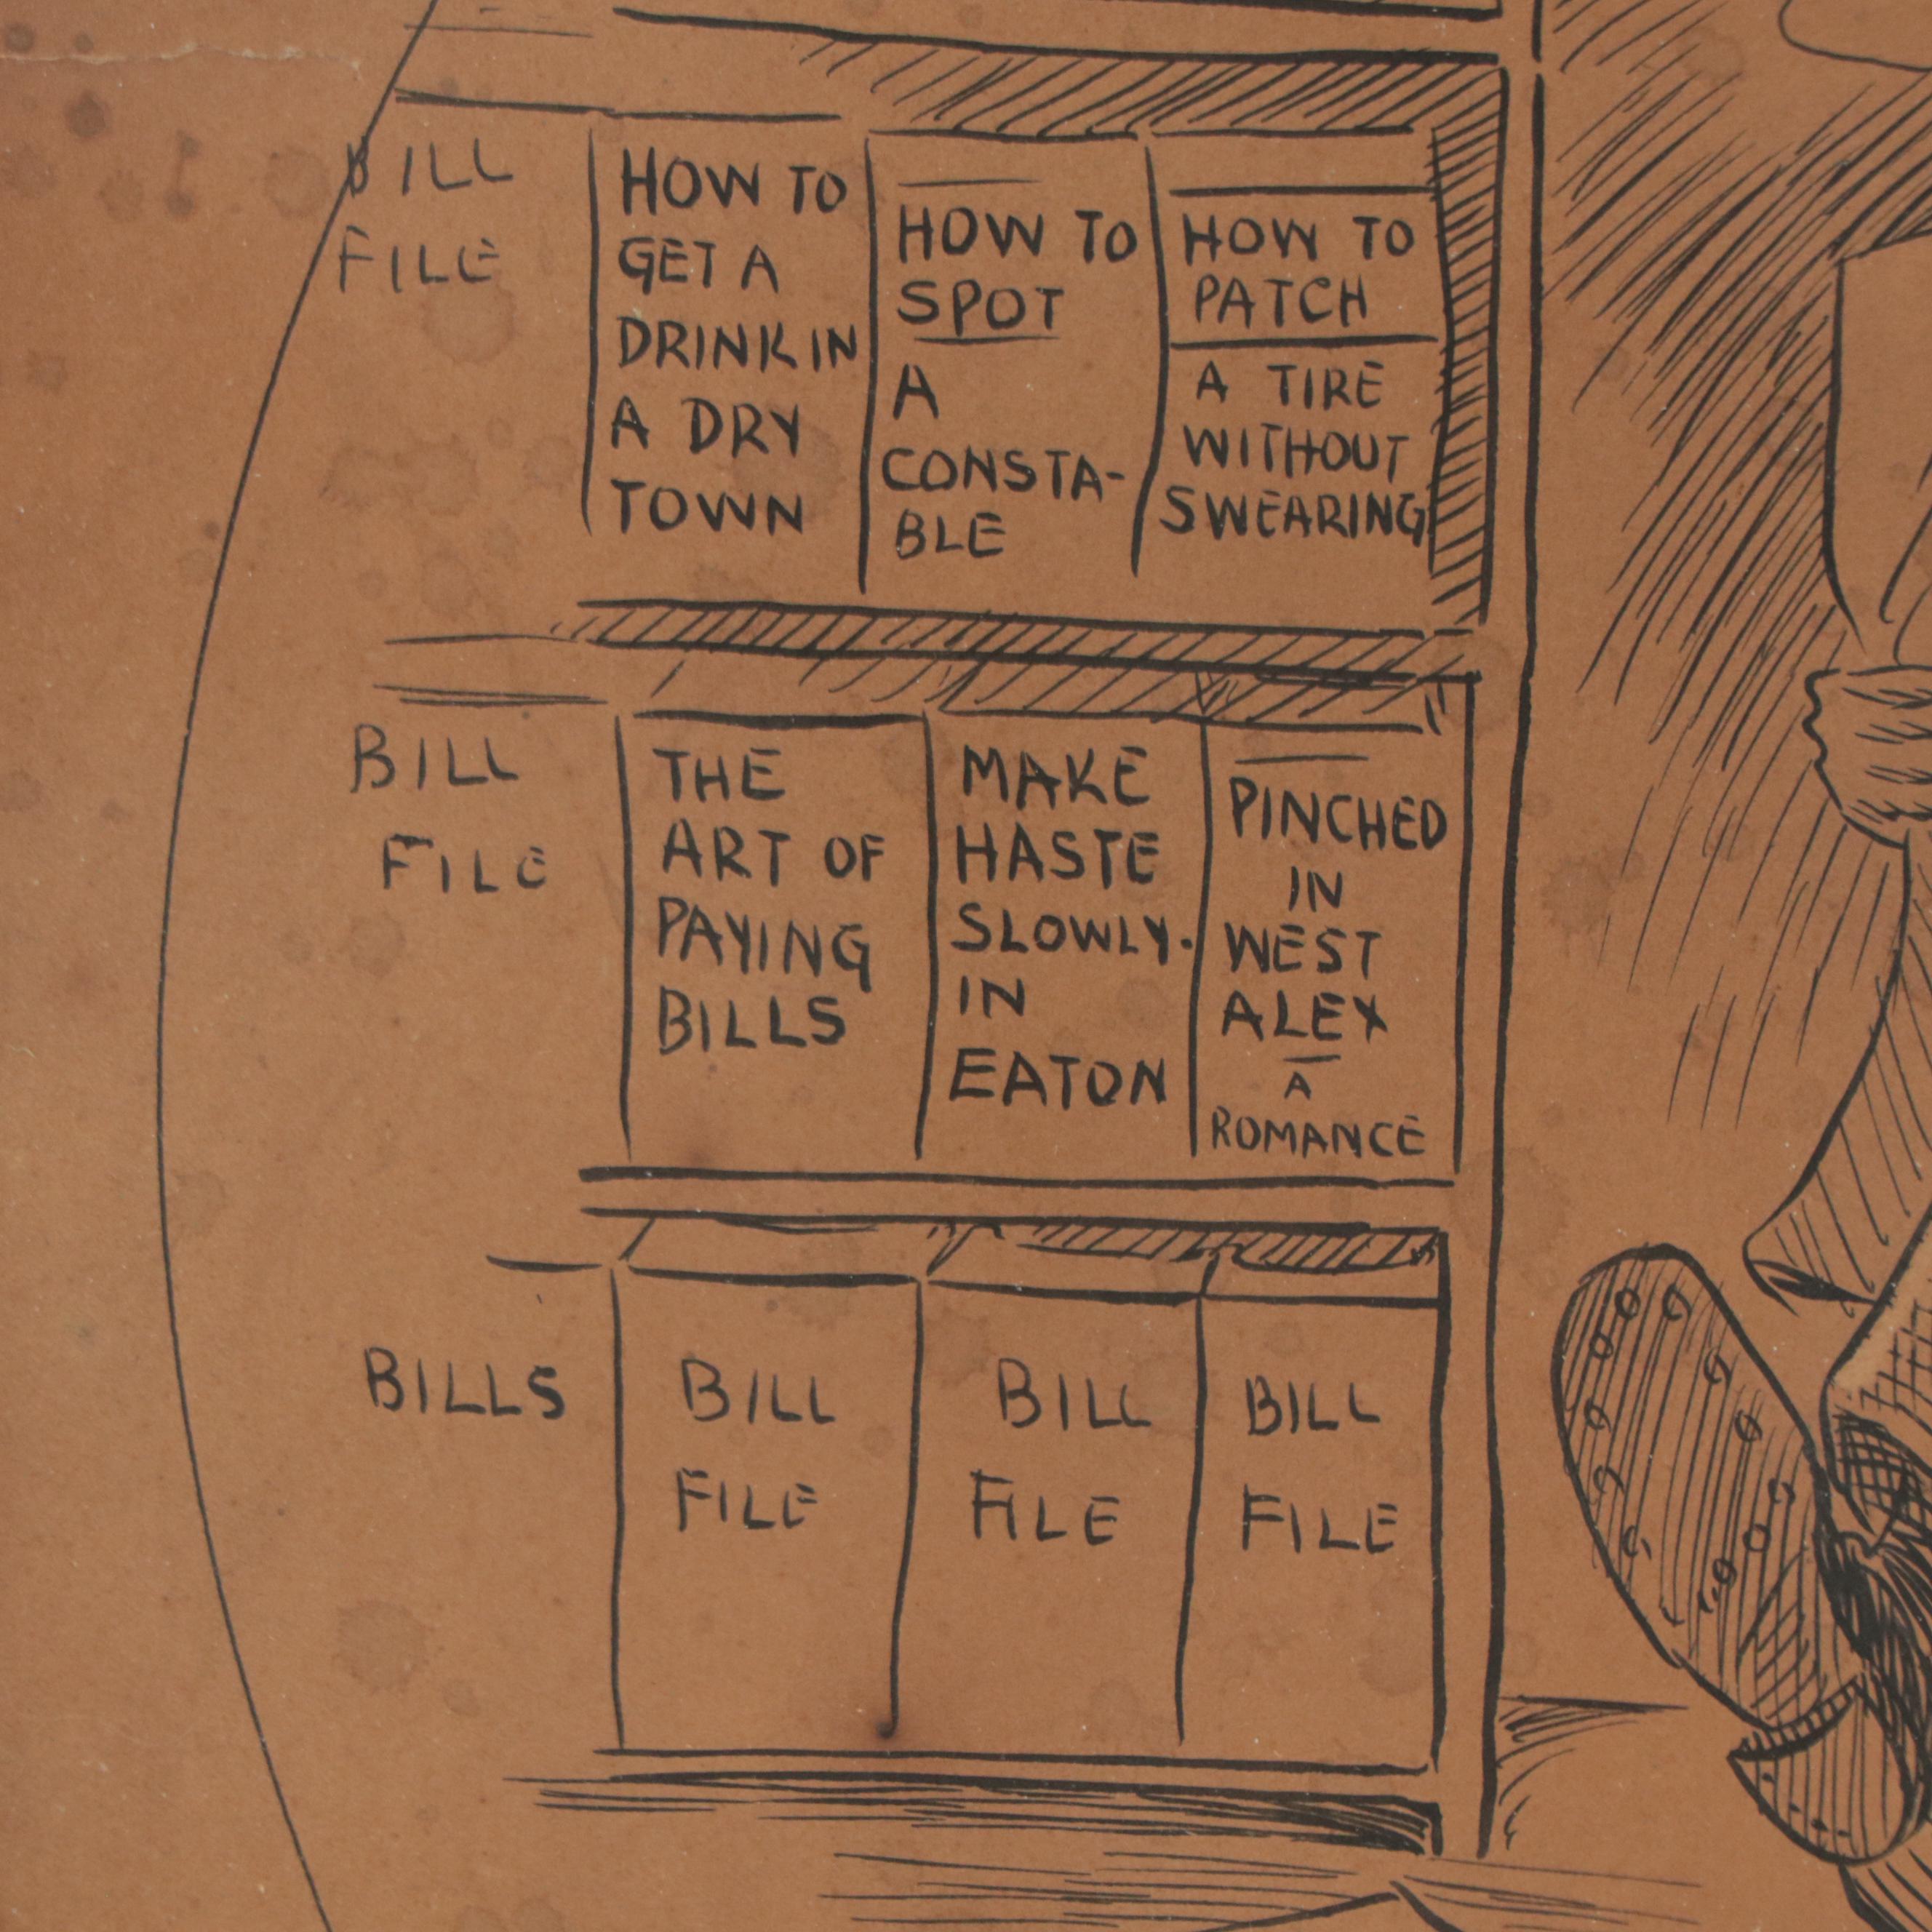 BILL
FILE
HOW TO
GET A
DRINK IN
A DRY
TOWN
HOW TO
SPOT
A
CONSTA-
BLE
HOW TO
PATCH
A TIRE
WITHOUT
SWEARING
BILL
FILE
THE
ART OF
PAYING
BILLS
MAKE
HASTE
SLOWLY.
IN
EATON
PINCHED
IN
WEST
ALEX
A
ROMANCE
BILLS
BILL
FILE
BILL
FILE
BILL
FILE